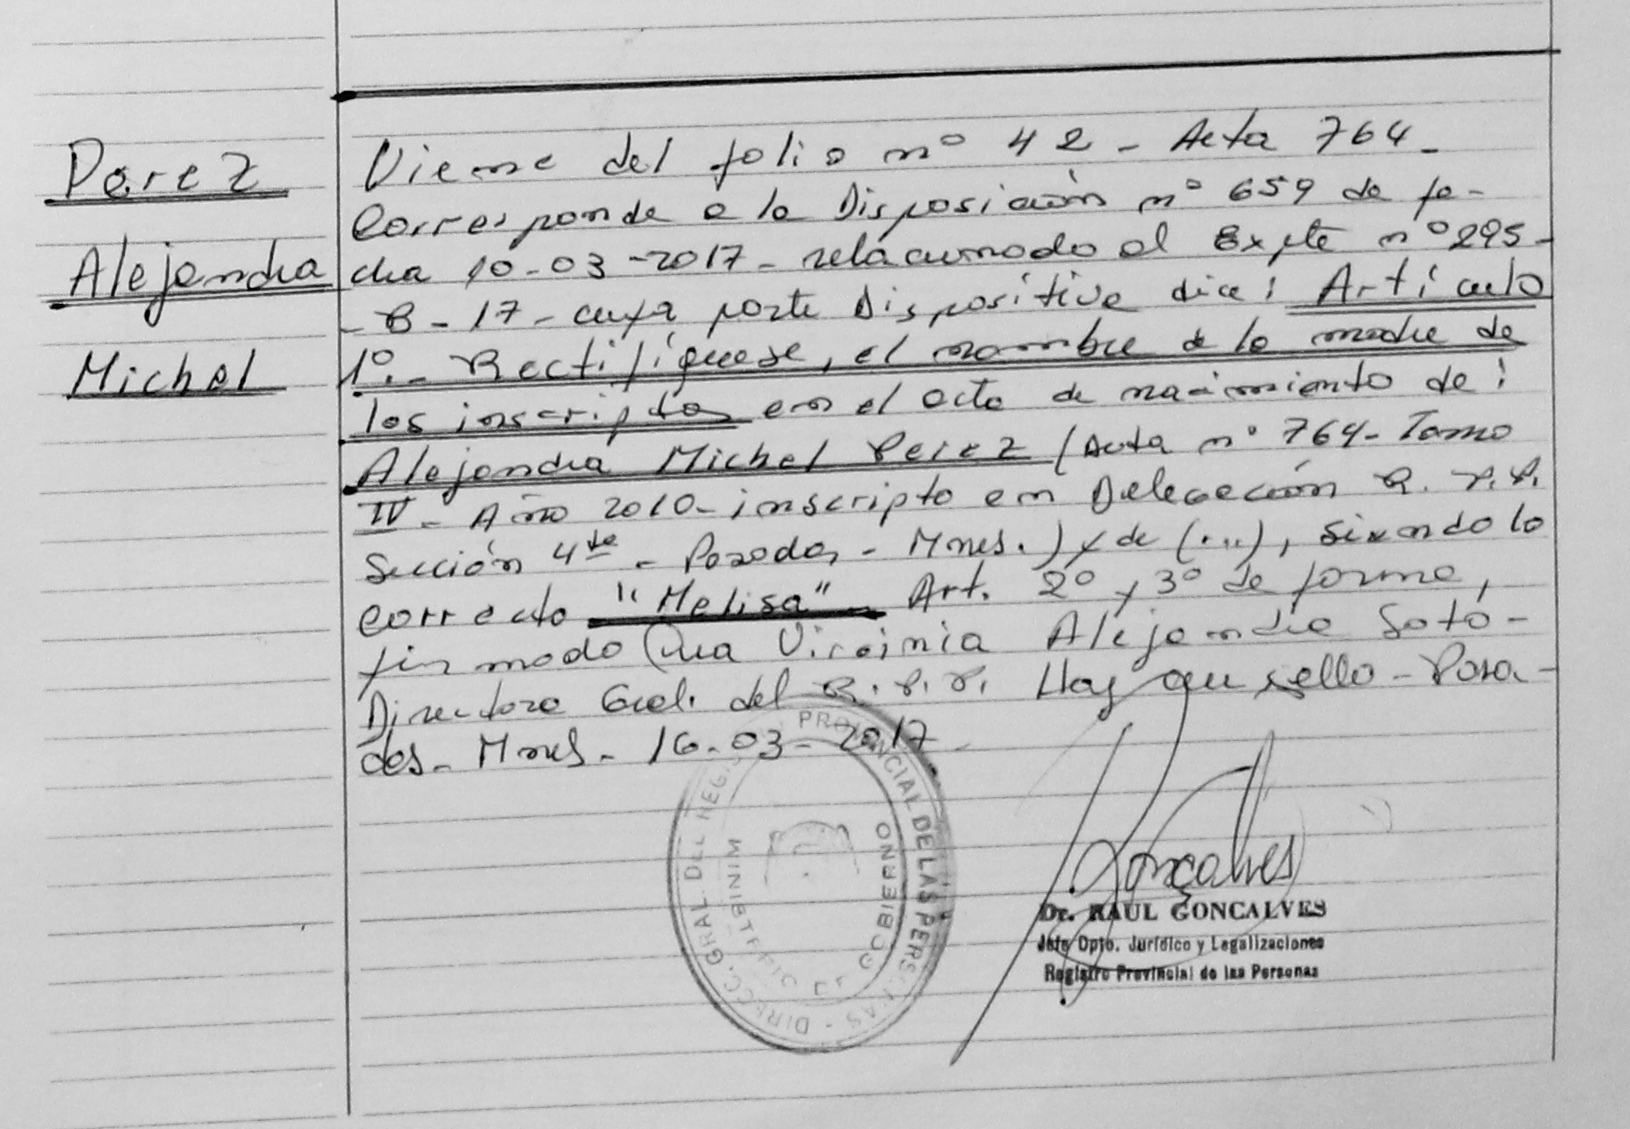 Perez
Alejandra
Michel
Viene del folio nº 42 - Acta 764 -
Corresponde a la Disposición nº 659 de fe-
cha 10-03-2017 - relacionado al Expte nº 295 -
- B - 17 - cuya parte Dispositiva dice: Artículo
1º.- Rectifíquese, el nombre de la madre de
los inscriptos en el acta de nacimiento de:
Alejandra Michel Perez (Acta nº 764 - Tomo
IV - Año 2010 - inscripto en Delegación R. P. P.
Sección 4ta - Posadas - Mnes.) y de (...), siendo lo
correcto "Melisa" - Art. 2º y 3º de forma,
firmado Dra Virginia Alejandra Soto -
Directora Gral. del R. P. P. Hay un sello - Posa-
das - Mnes - 16-03-2017 -
DIRECC. GRAL. DEL REG. PROVINCIAL DE LAS PERSONAS -
MINISTERIO DE GOBIERNO
Goncalves
Dr. RAUL GONCALVES
Jefe Dpto. Jurídico y Legalizaciones
Registro Provincial de las Personas